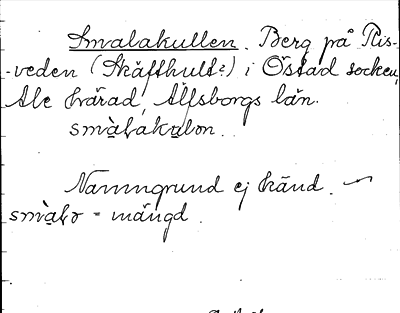 Smalakullen. Berg på Ris-
-veden (Skäfthult?) i Östad socken,
Ale härad, Älfsborgs län.
Namngrund ej känd.
= mängd.